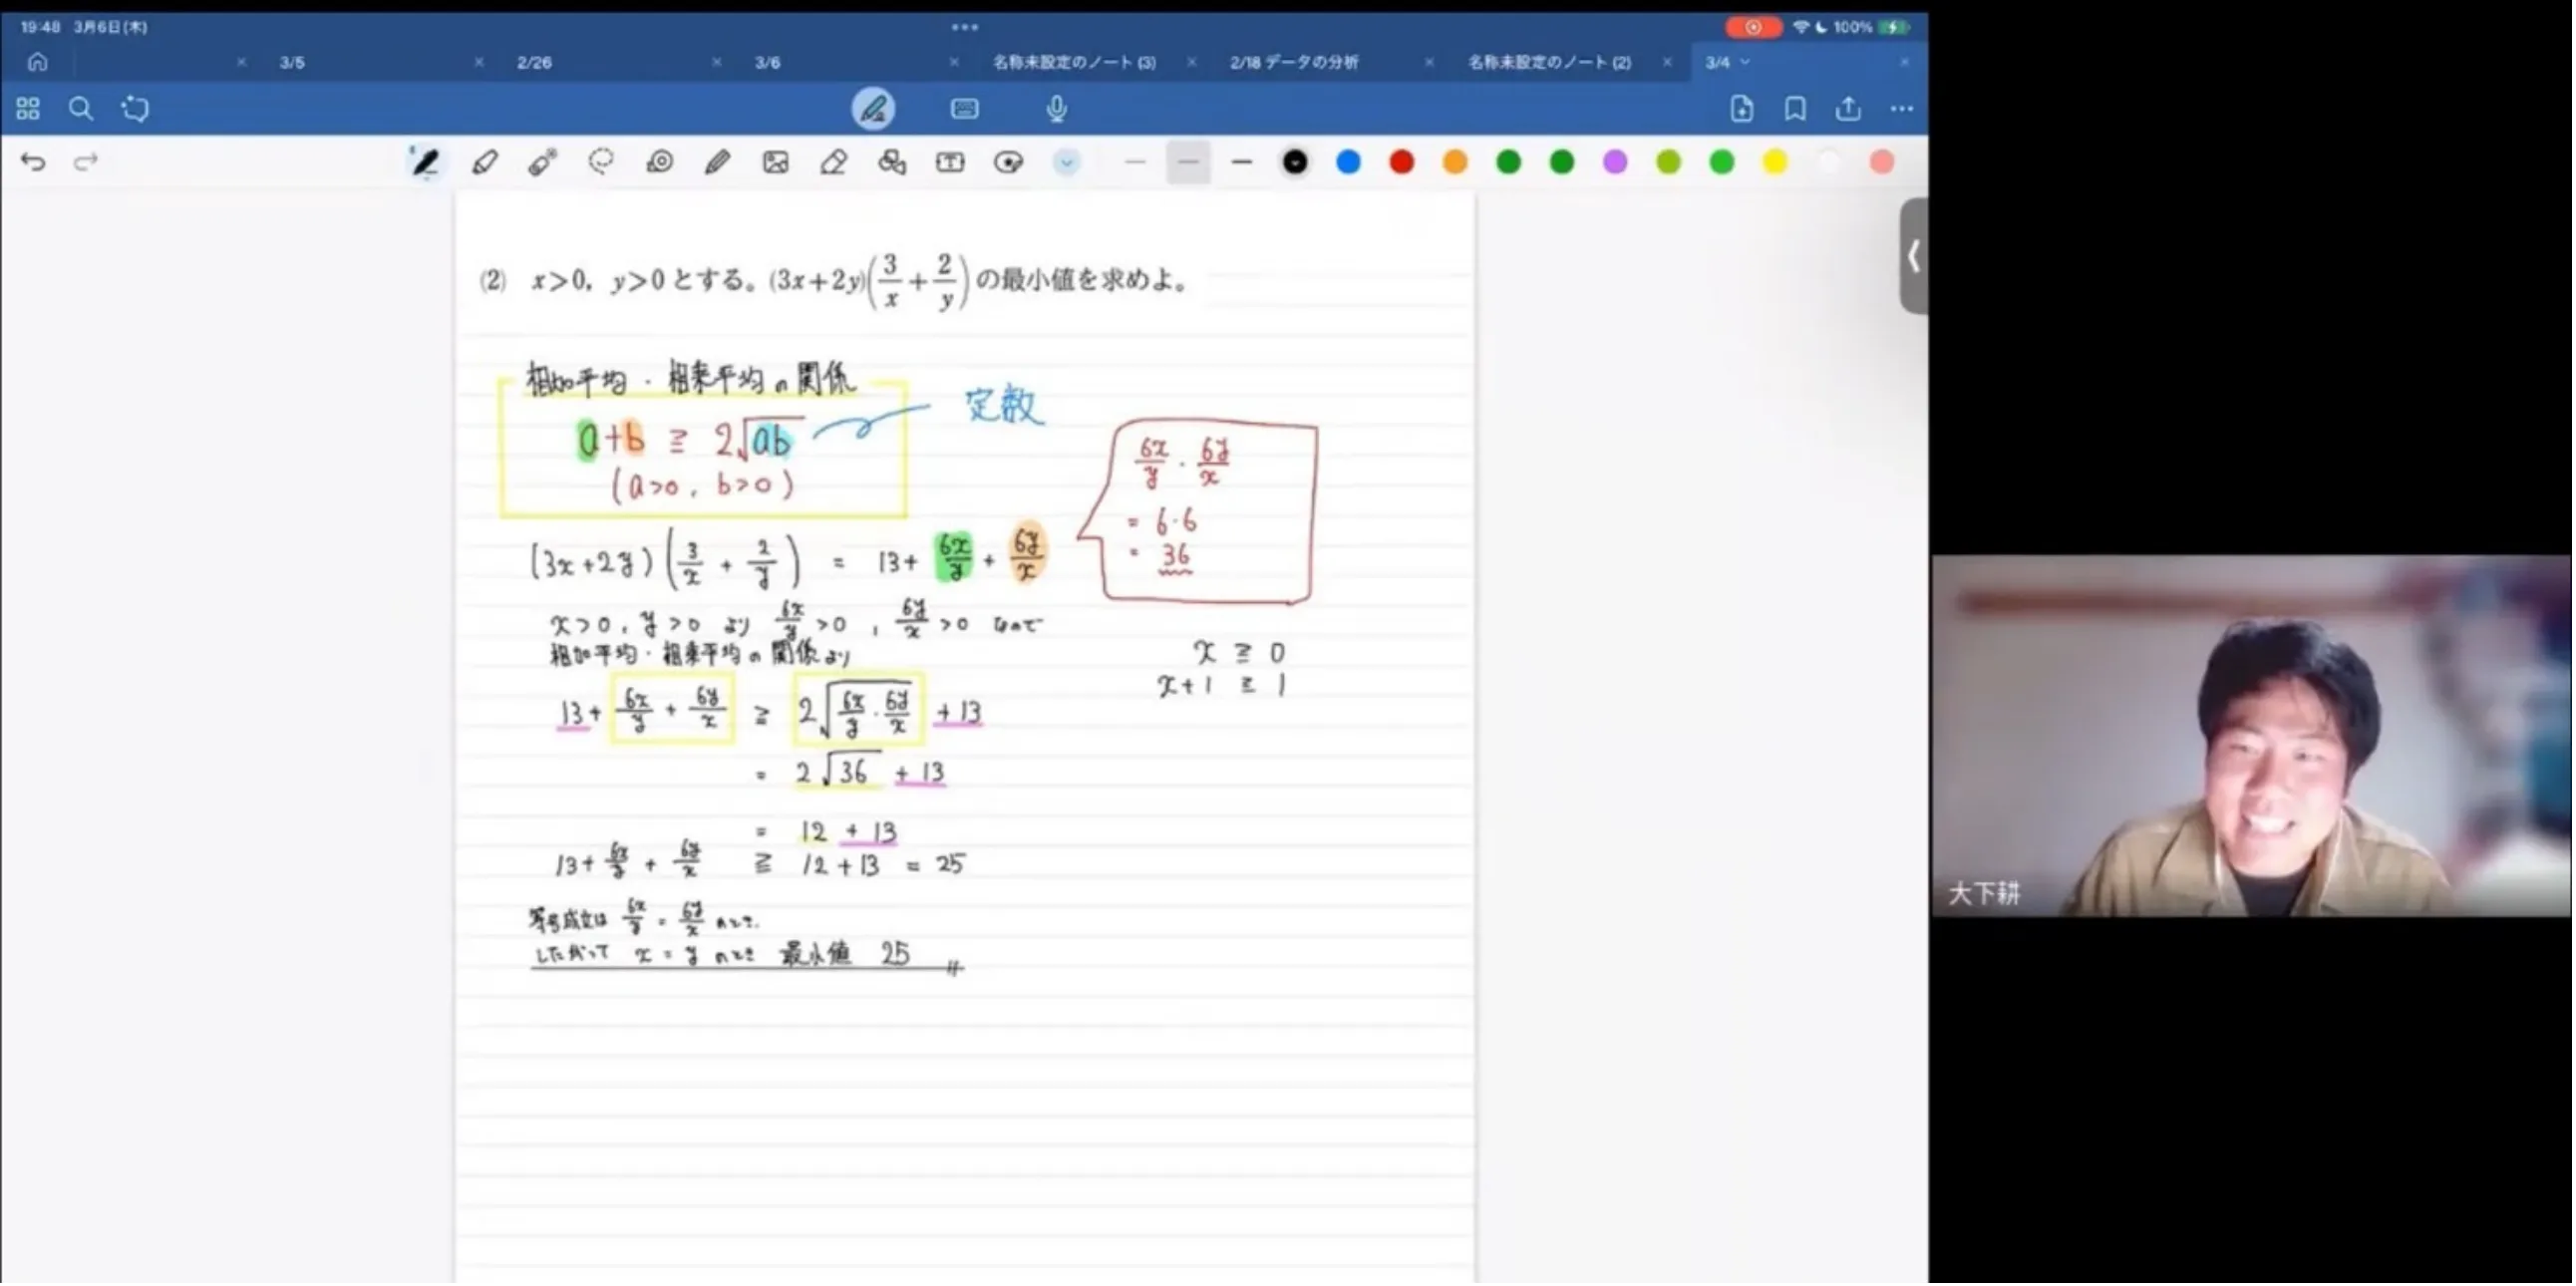 19:48 3月6日(木)
100%
3/5
2/26
3/6
名称未設定のノート (3)
2/18 データの分析
名称未設定のノート (2)
3/4
(2) x>0, y>0 とする。(3x+2y)(3/x+2/y) の最小値を求めよ。
相加平均・相乗平均の関係
a+b ≧ 2√ab
定数
(a>0, b>0)
6x/y・6y/x
= 6・6
= 36
(3x+2y)(3/x + 2/y) = 13+ 6x/y + 6y/x
x>0, y>0 より 6x/y >0, 6y/x >0 なので
相加平均・相乗平均の関係より
x ≧ 0
x+1 ≧ 1
13+ 6x/y + 6y/x ≧ 2√6x/y・6y/x +13
= 2√36 +13
= 12 +13
13+ 6x/y + 6y/x ≧ 12+13 = 25
等号成立は 6x/y = 6y/x のとき.
したがって x = y のとき 最小値 25
大下耕